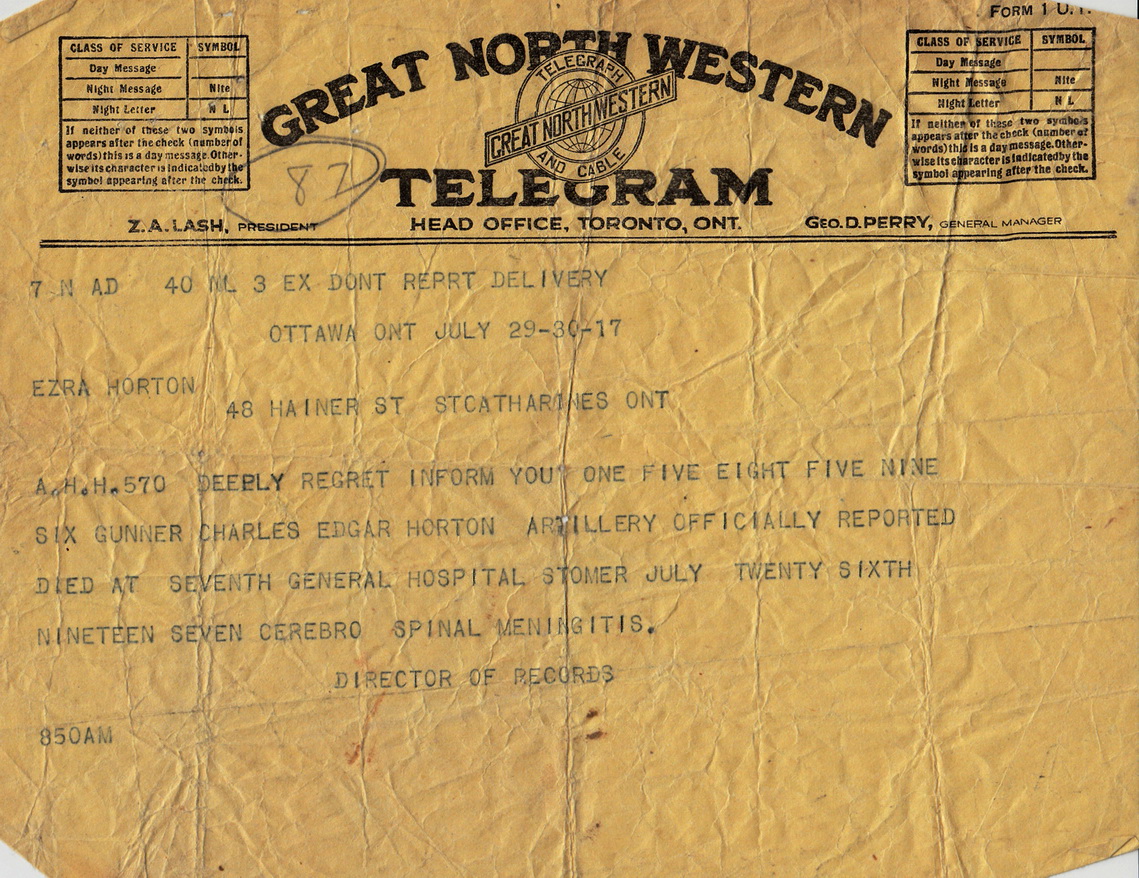 FORM 1 U.T.
CLASS OF SERVICE SYMBOL
Day Message
Night Message Nite
Night Letter N L
If neither of these two symbols
appears after the check (number of
words) this is a day message. Other-
wise its character is indicated by the
symbol appearing after the check.
GREAT NORTH WESTERN
TELEGRAPH
GREAT NORTHWESTERN
AND CABLE
TELEGRAM
CLASS OF SERVICE SYMBOL
Day Message
Night Message Nite
Night Letter N L
If neither of these two symbols
appears after the check (number of
words) this is a day message. Other-
wise its character is indicated by the
symbol appearing after the check.
Z. A. LASH, PRESIDENT HEAD OFFICE, TORONTO, ONT. GEO. D. PERRY, GENERAL MANAGER
7 N AD 40 NL 3 EX DONT REPRT DELIVERY
OTTAWA ONT JULY 29-30-17
EZRA HORTON
48 HAINER ST STCATHARINES ONT
A.H.H.570 DEEPLY REGRET INFORM YOU ONE FIVE EIGHT FIVE NINE
SIX GUNNER CHARLES EDGAR HORTON ARTILLERY OFFICIALLY REPORTED
DIED AT SEVENTH GENERAL HOSPITAL STOMER JULY TWENTY SIXTH
NINETEEN SEVEN CEREBRO SPINAL MENINGITIS.
DIRECTOR OF RECORDS
850AM